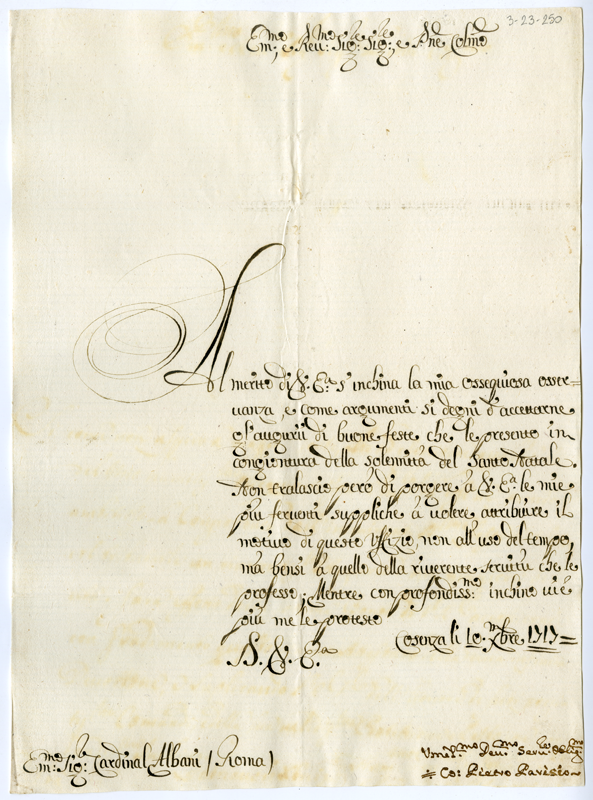 3-23-250
Em:mo e Reu:mo Sig:r Sig:r, e Pne Colmo
Al merito di V. Em.a s'inchina la mia ossequiosa osser=
uanza, e come argumenti si degni d'accettarne
gl'augurii di buone feste che le presento in
congiontura della solennità del Santo Natale.
Non tralascio però di porgere à V. E.a le mie
più feruenti suppliche à uolere attribuire il
motiuo di questo Uffizio non all'uso del tempo,
mà bensi à quello della riuerente seruitù che le
professo; Mentre con profondiss:mo inchino uie
più me le protesto
Cosenza li 10. Xbre 1717=
D. V. E.a
Em:mo Sig:r Cardinal Albani (Roma)
Umil:mo Deu:mo Seru: Oblig:mo
= Co: Pietro